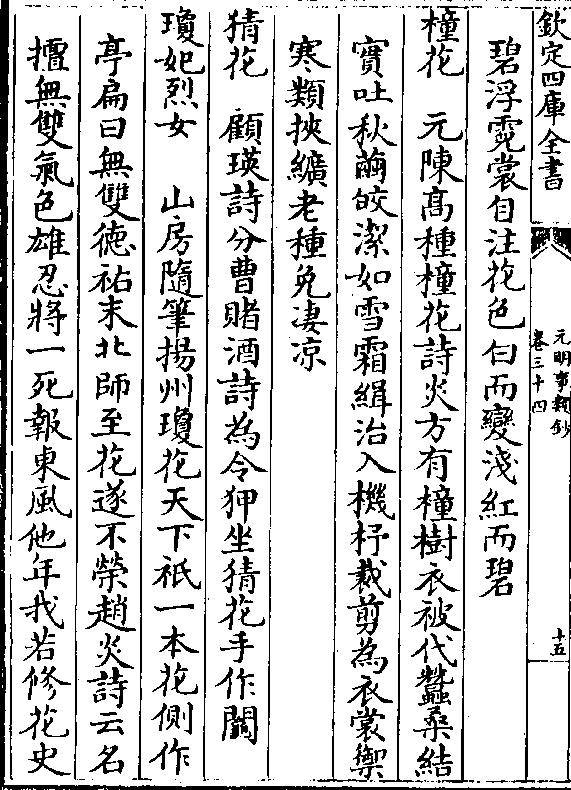 欽定四庫全書
元明事類鈔
卷三十四
十五
碧浮霓裳自注花色白而變淺紅而碧
橦花　元陳高種橦花詩炎方有橦樹衣被代蠶桑結
實吐秋繭皎潔如雪霜緝治入機杼裁剪為衣裳禦
寒類挾纊老種免淒凉
猜花　顧瑛詩分曹賭酒詩為令狎坐猜花手作鬮
瓊妃烈女　山房隨筆揚州瓊花天下祇一本花側作
亭扁曰無雙德祐末北師至花遂不榮趙炎詩云名
擅無雙氣色雄忍將一死報東風他年我若修花史